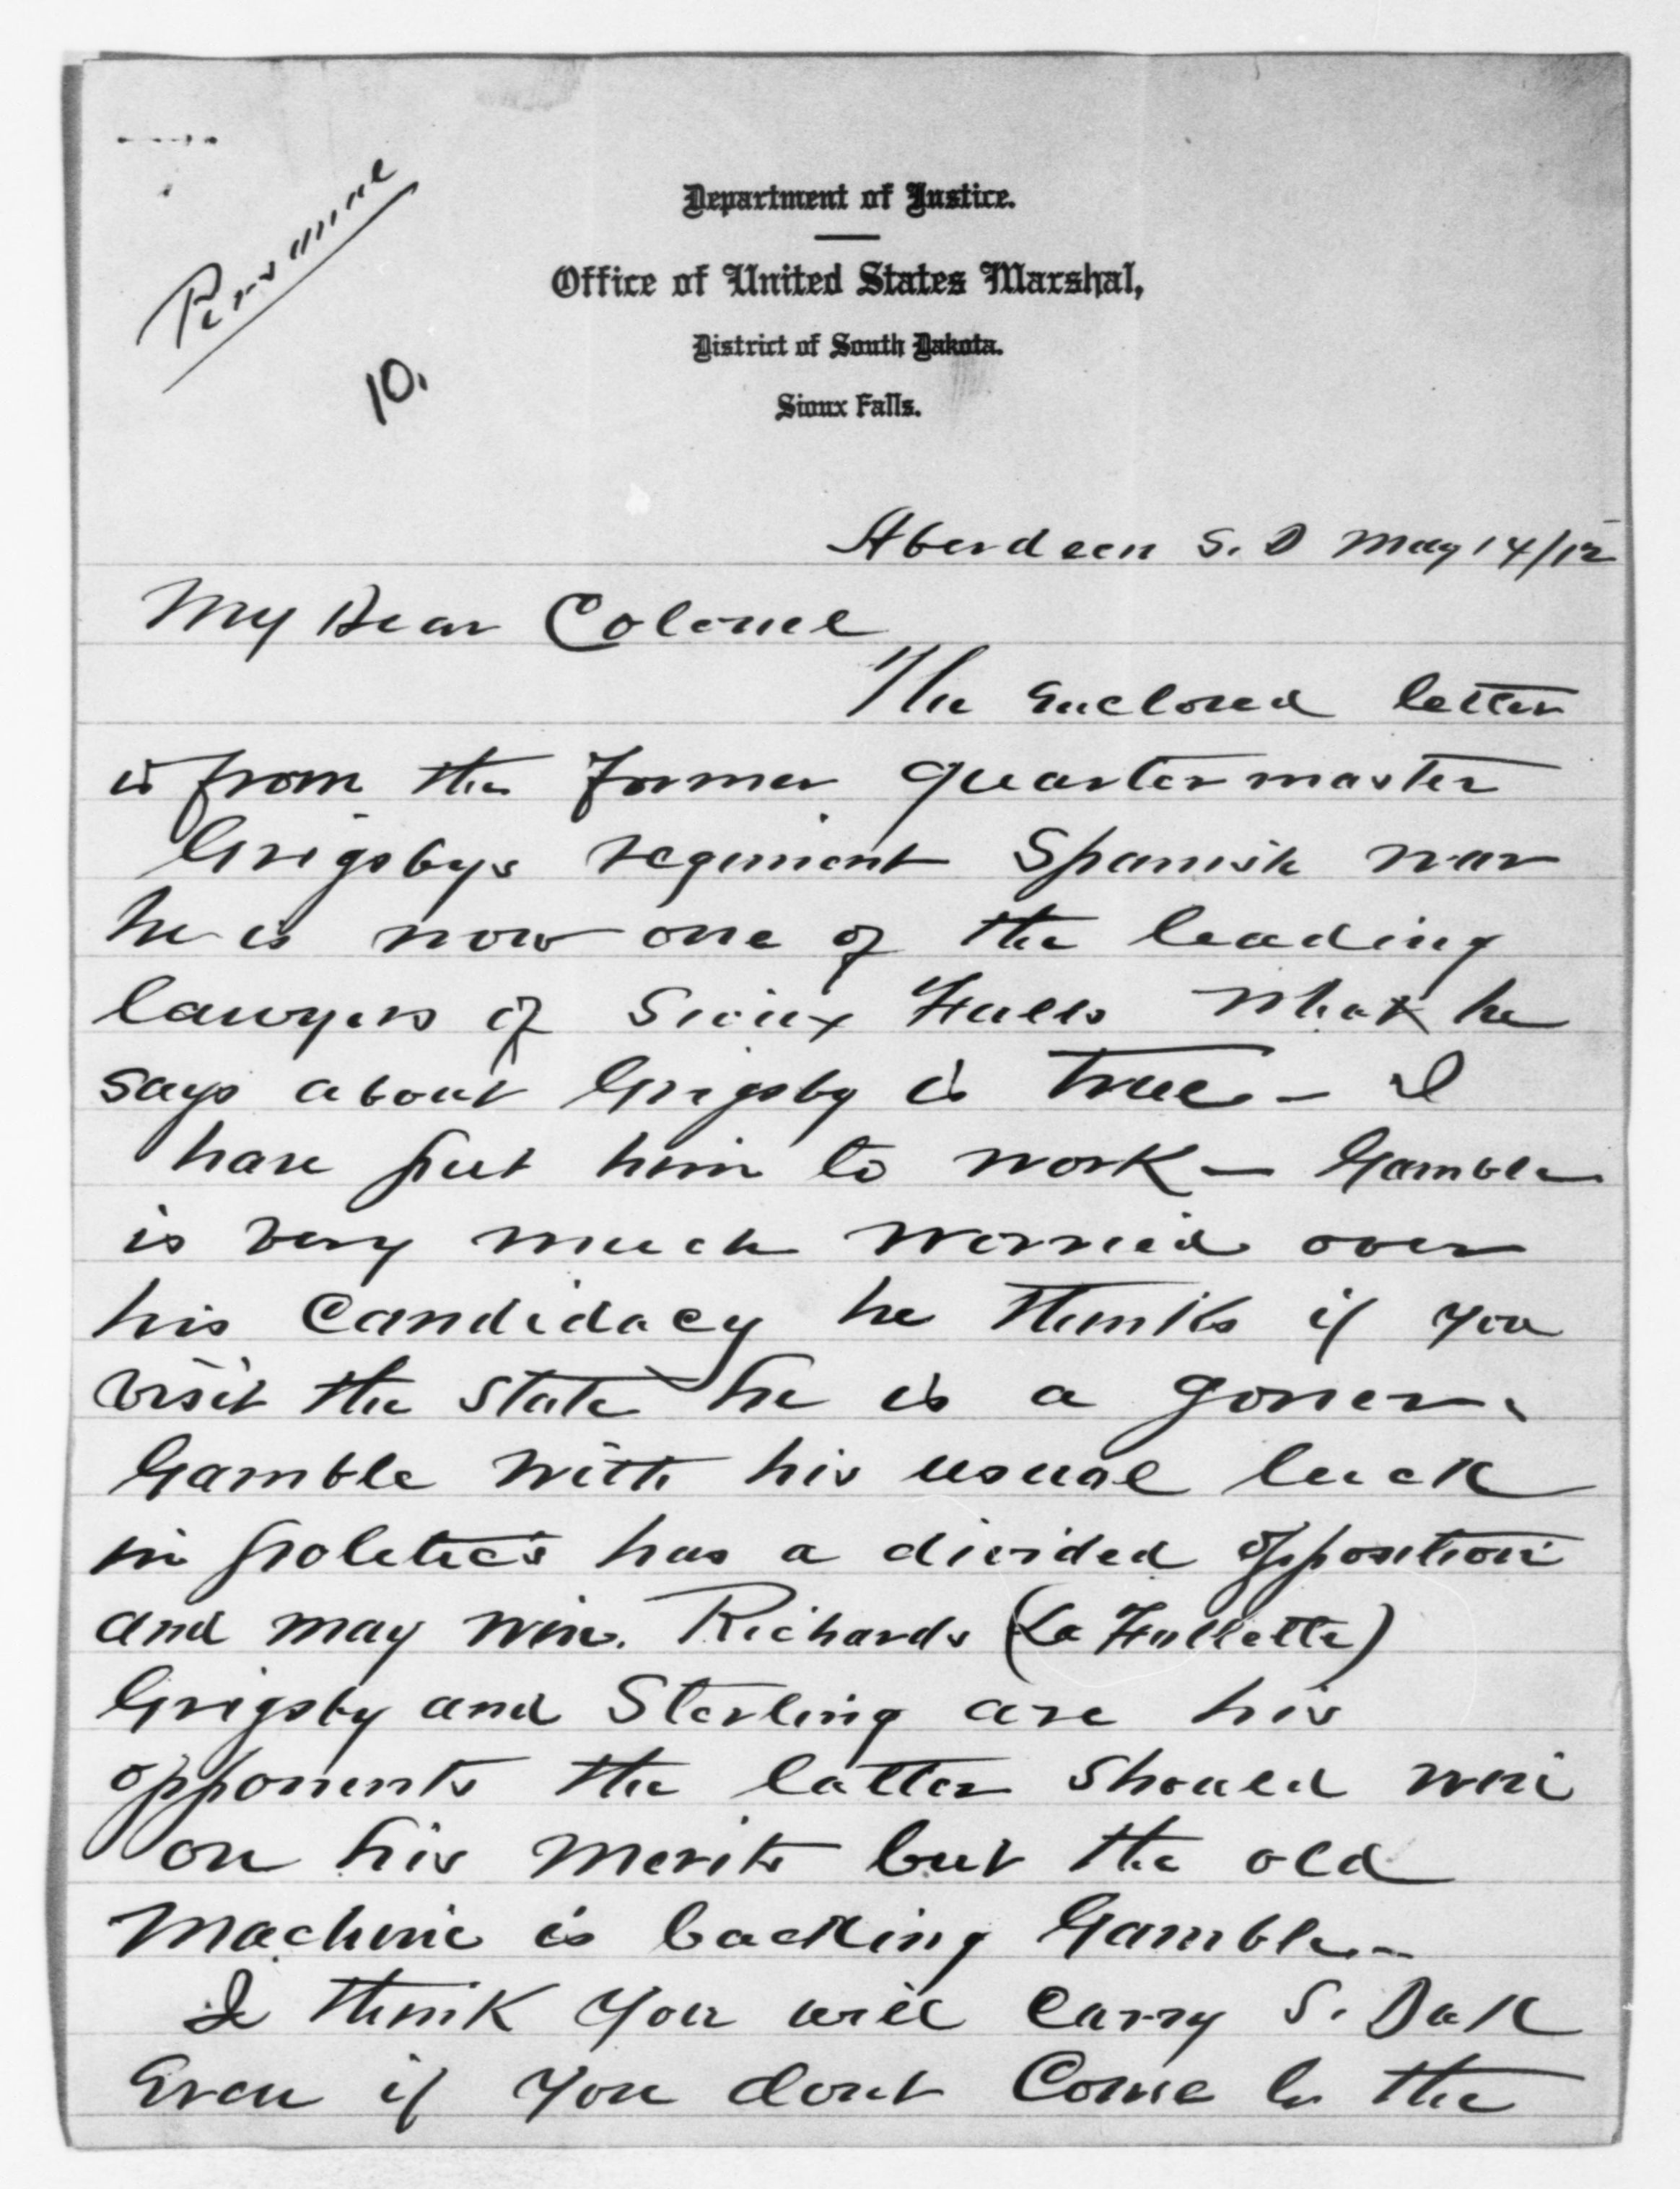 Personal
10.
Department of Justice.
Office of United States Marshal,
District of South Dakota.
Sioux Falls.
Aberdeen S. D May 14/12
My Dear Colonel
The enclosed letter
is from the former quartermaster
Grigsbys regiment Spanish war
he is now one of the leading
lawyers of Sioux Falls What he
says about Grigsby is true - I
have put him to work - Gamble
is very much worried over
his Candidacy he thinks if you
visit the State he is a goner.
Gamble with his usual luck
in politics has a divided opposition
and may win. Richards (La Follette)
Grigsby and Sterling are his
opponents the latter should win
on his merits but the old
Machine is backing Gamble -
I think you will carry S. Dak
Even if you dont Come to the